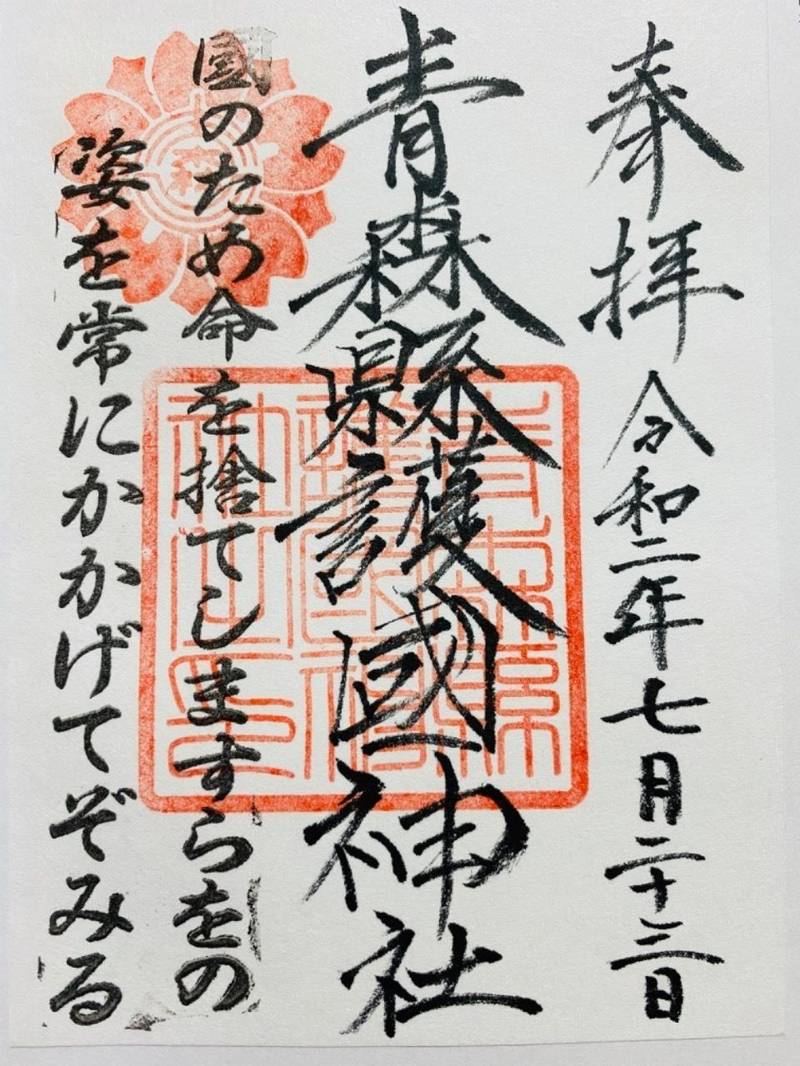 奉拝 令和二年七月二十三日
青森縣護國神社
國のため命を捨てしますらをの
姿を常にかかげてぞみる